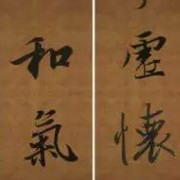 虛懷
和氣